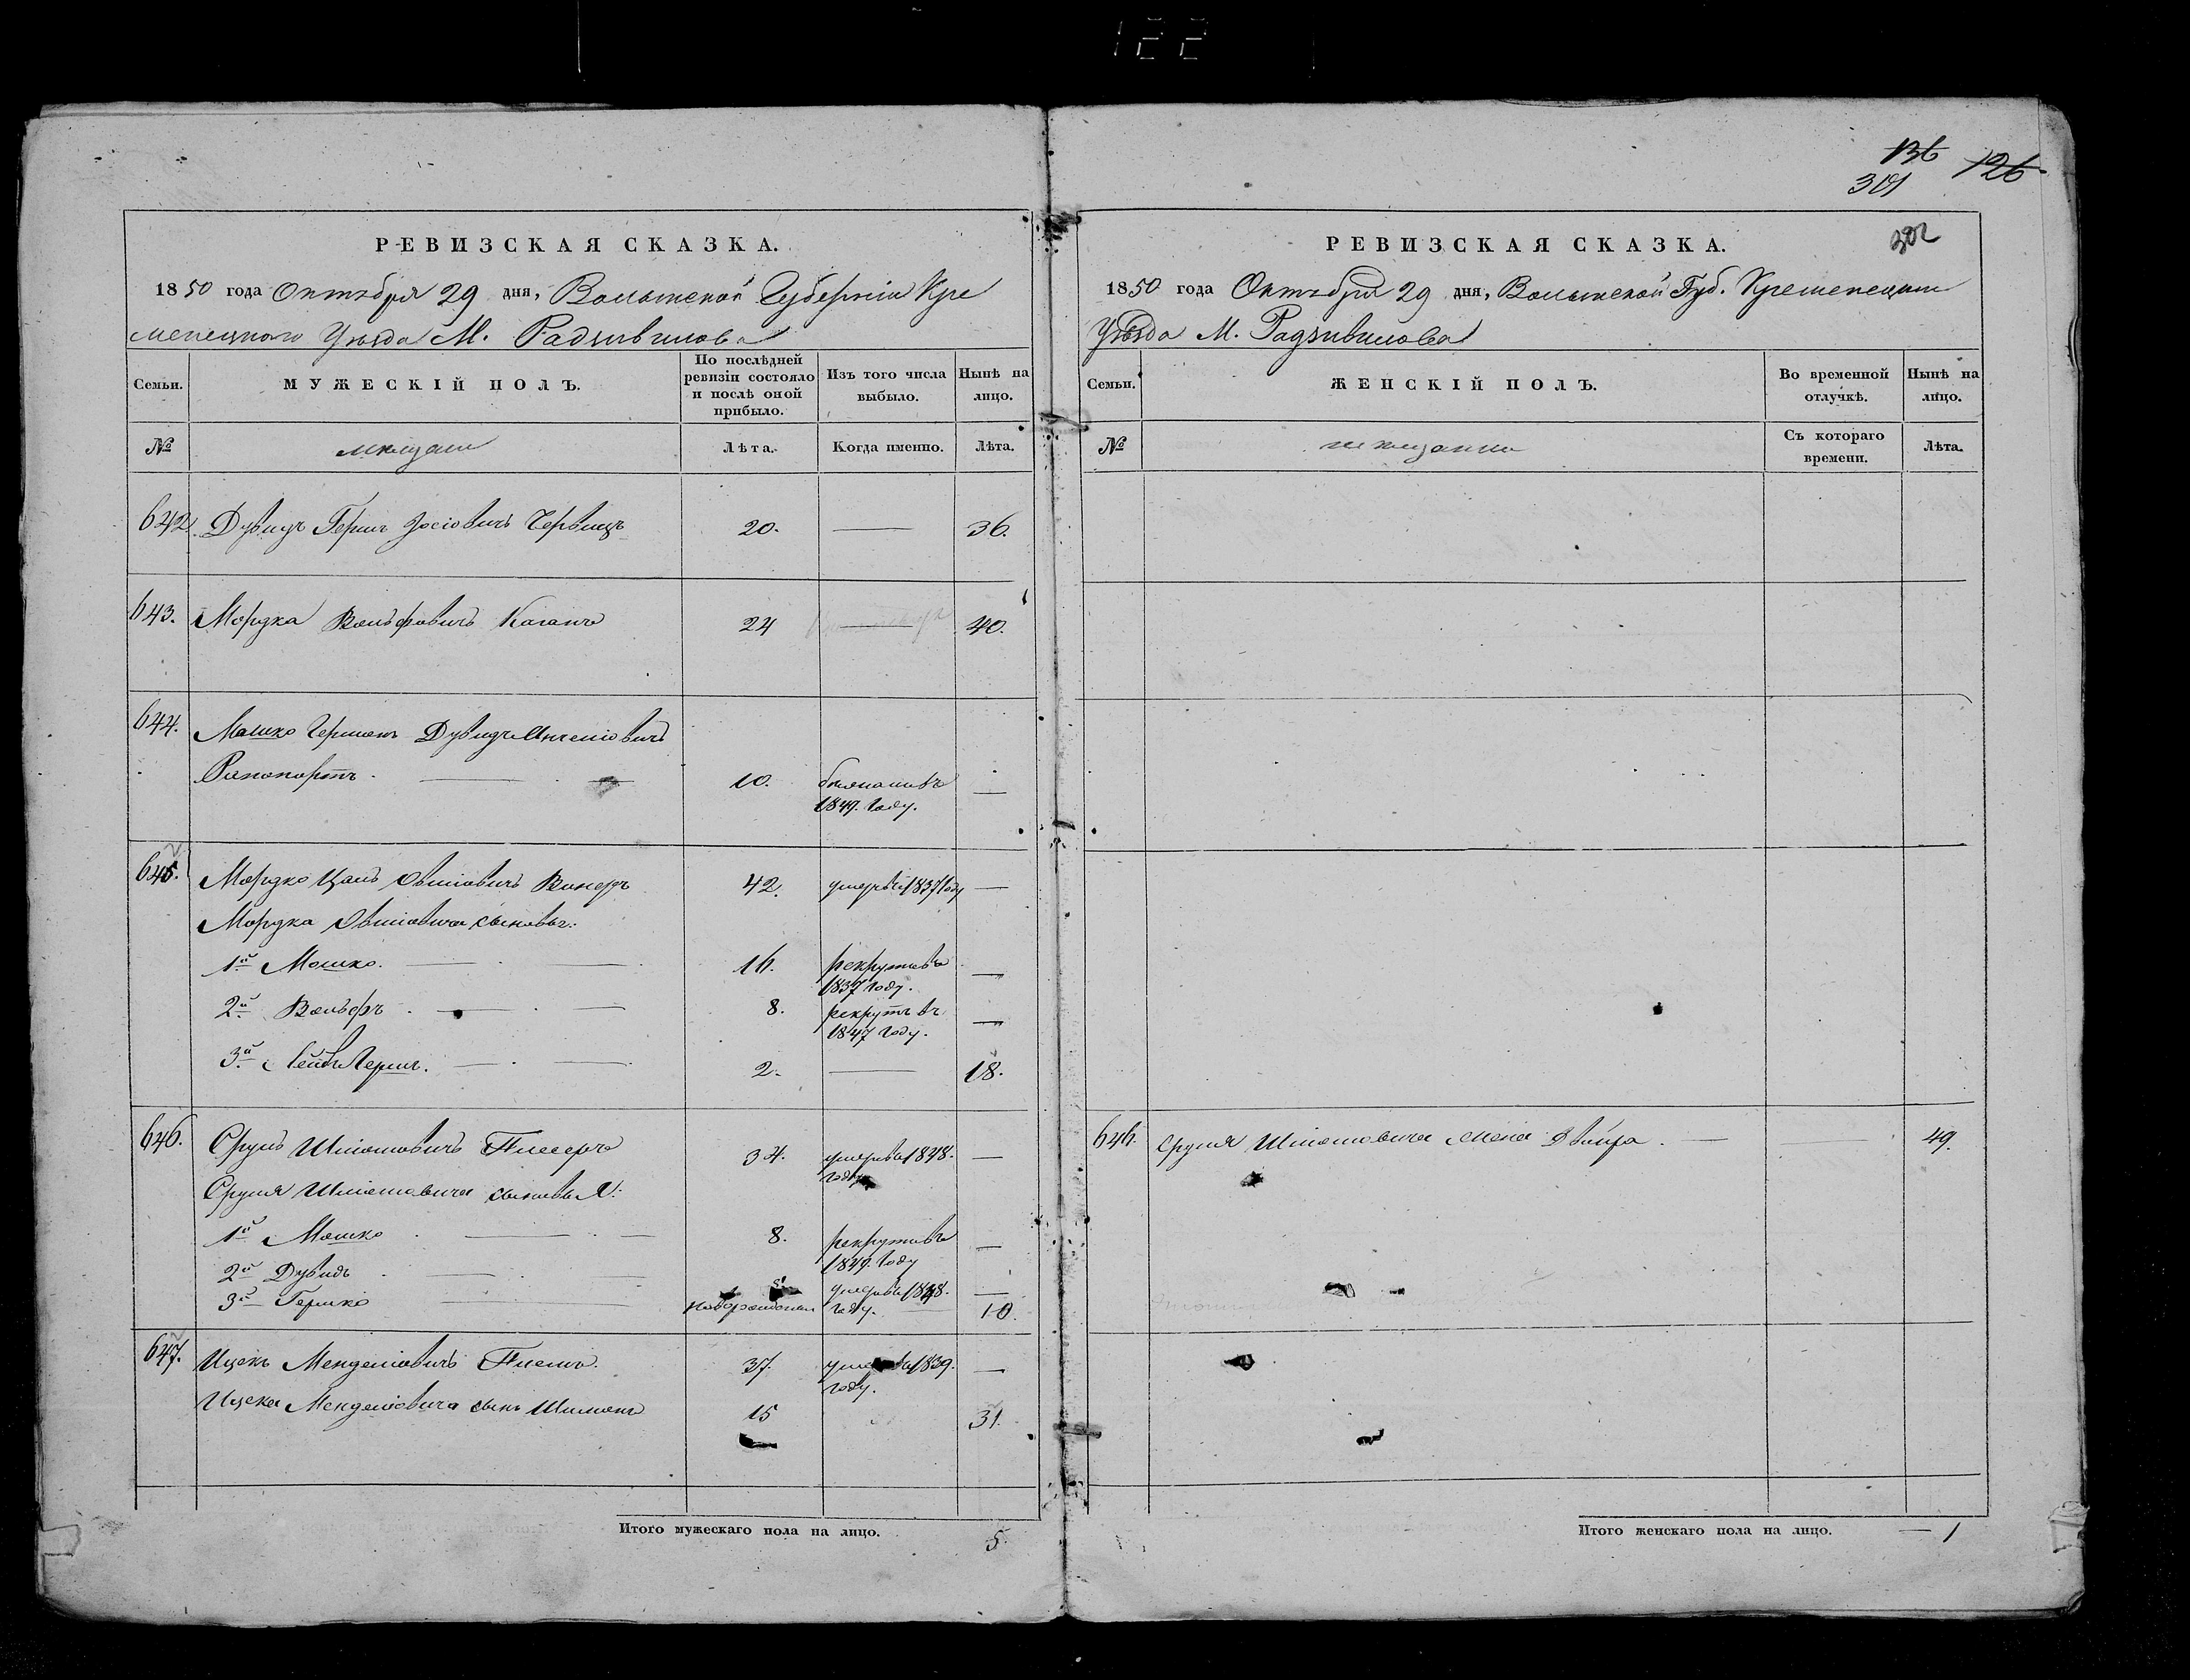 122
136 126
301
РЕВИЗСКАЯ СКАЗКА.
1850 года Октября 29 дня, Волынской Губерніи Кре
менецкого Уѣзда М. Радзивилова
Семьи.
МУЖЕСКІЙ ПОЛЪ.
По послѣдней ревизіи состояло и послѣ оной прибыло.
Изъ того числа выбыло.
Нынѣ на лицо.
№
мѣщане
Лѣта.
Когда именно.
Лѣта.
642. Дувидъ Герш Іосіовичъ 20. — 36.
643. Мордка Вольфовичъ Каганъ 24 — 40.
644. Мошко Гершонъ Дувидъ
Рапопортъ. 10. 1849. Году. —
645. Мордко Овшіовичъ Винеръ 42. умеръ въ 1837 Году —
Мордка Овшіовича сыновья:
1й Мошко. 16. рекрутъ въ —
1837 Году.
2й Вольфъ 8. рекрутъ въ —
1847 Году.
3й Лейбъ Герш. 2. — 18.
646. Сруль Шліомовичъ 34. умеръ въ 1848. —
Году
Сруля Шліомовича сыновья:
1й Мошко 8. рекрутъ въ —
1849. Году
2й Дувидъ умеръ въ 1848. —
году.
3й Гершко новорожденъ — 10.
647. Ицекъ Менделіовичъ 37. умеръ въ 1839. —
году.
Ицека Менделіовича сынъ Шимонъ 15 31.
Итого мужескаго пола на лицо. 5.
302
РЕВИЗСКАЯ СКАЗКА.
1850 года Октября 29 дня, Волынской Губ. Кременецкого
Уѣзда М. Радзивилова
Семьи.
ЖЕНСКІЙ ПОЛЪ.
Во временной отлучкѣ.
Нынѣ на лицо.
№
Съ котораго времени.
Лѣта.
646. Сруля Шліомовича жена Двойра. — 49.
Итого женскаго пола на лицо. — 1